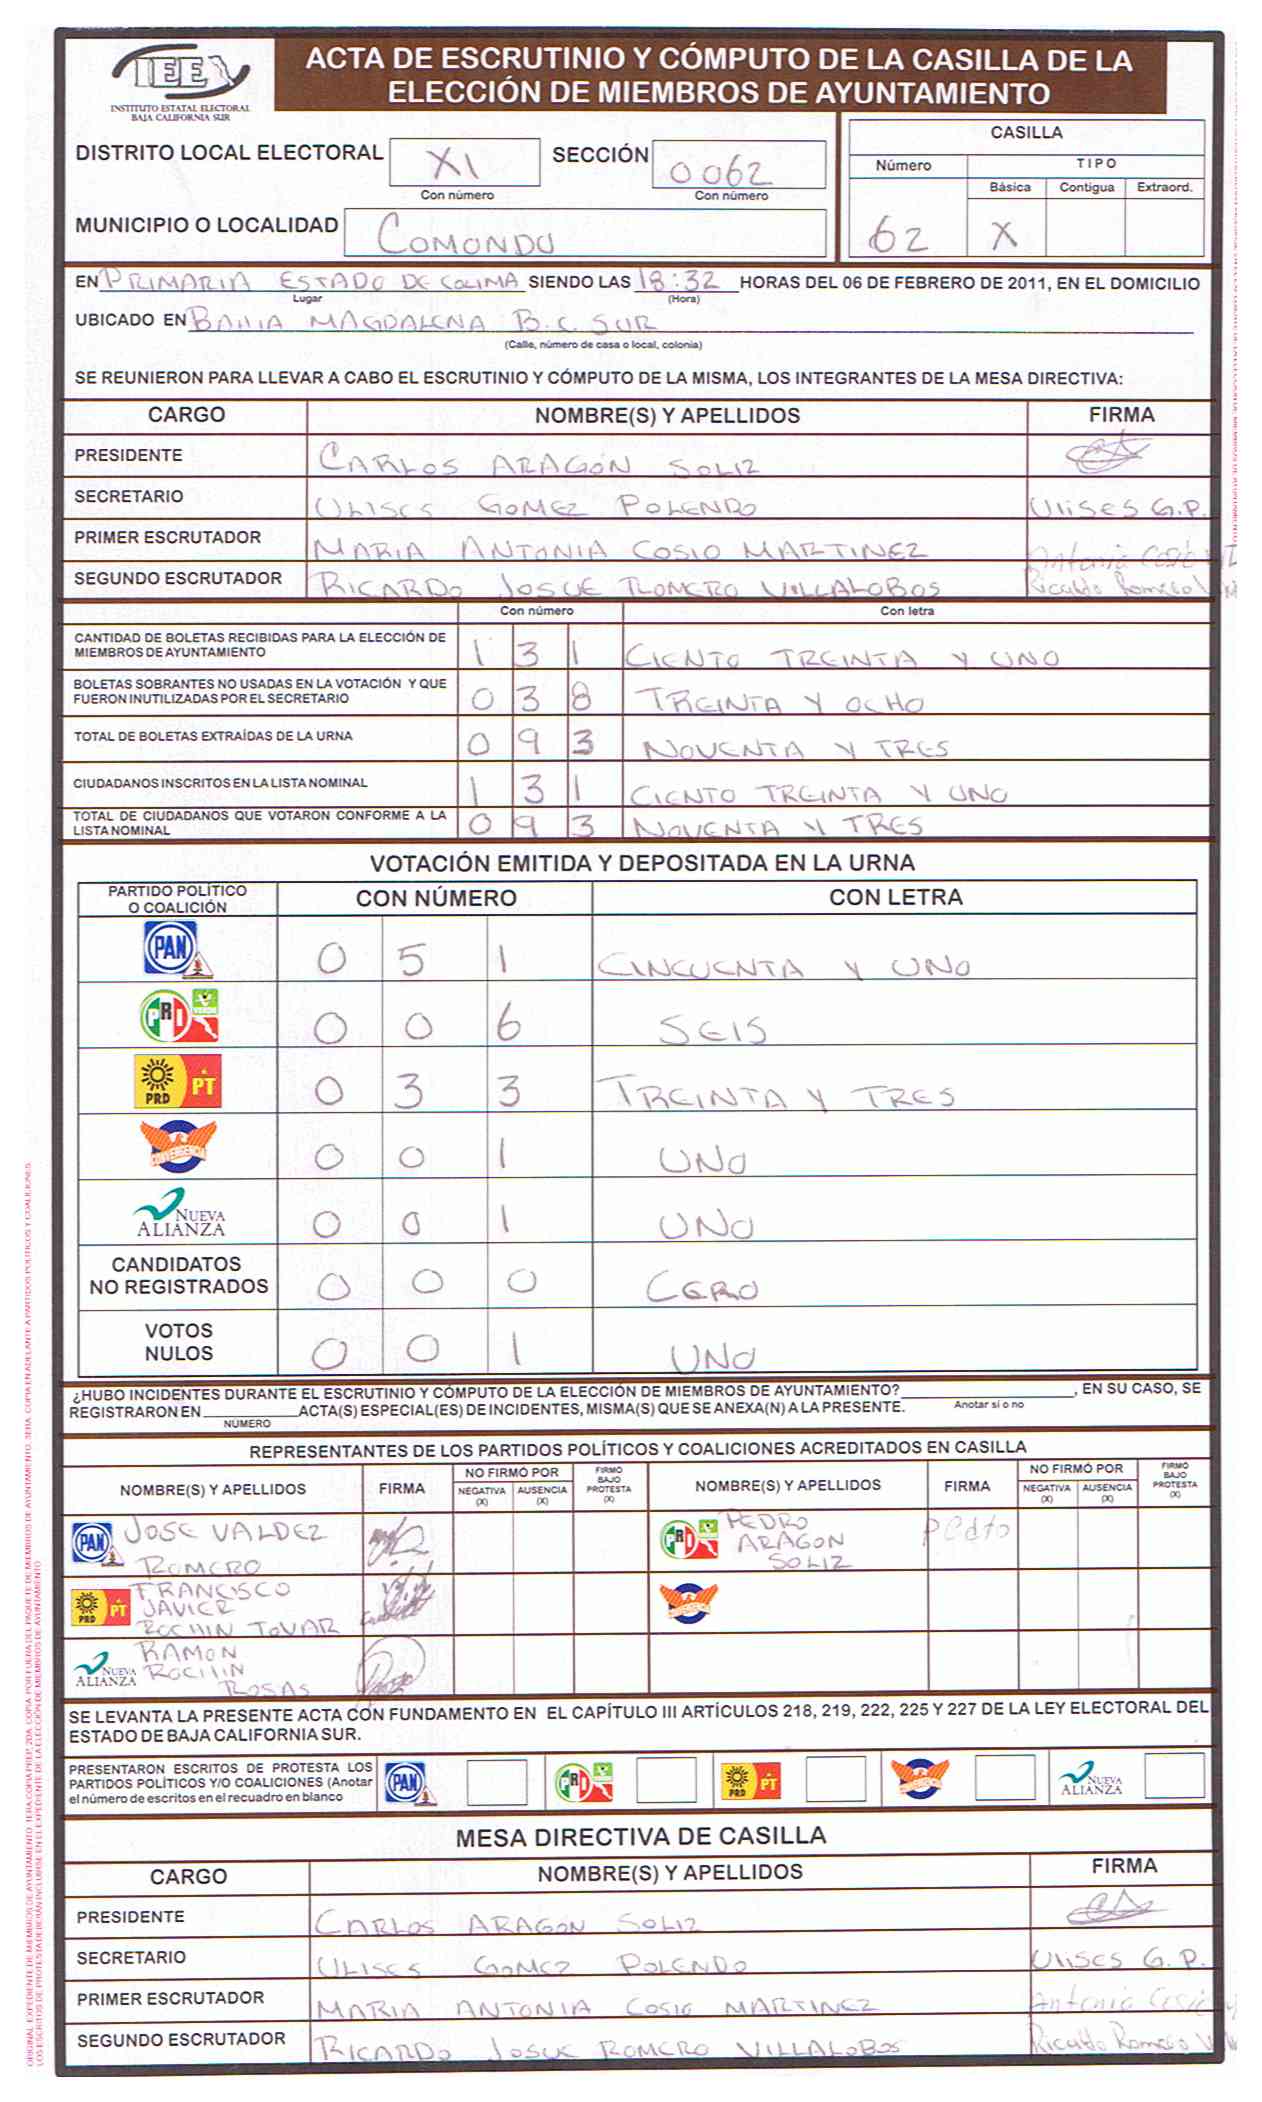 IEE
INSTITUTO ESTATAL ELECTORAL
BAJA CALIFORNIA SUR
ACTA DE ESCRUTINIO Y CÓMPUTO DE LA CASILLA DE LA
ELECCIÓN DE MIEMBROS DE AYUNTAMIENTO
DISTRITO LOCAL ELECTORAL XI SECCIÓN 0062
Con número Con número
MUNICIPIO O LOCALIDAD COMONDU
CASILLA
Número TIPO
Básica Contigua Extraord.
62 X
EN PRIMARIA ESTADO DE COLIMA SIENDO LAS 18:32 HORAS DEL 06 DE FEBRERO DE 2011, EN EL DOMICILIO
Lugar (Hora)
UBICADO EN BAHIA MAGDALENA B.C. SUR
(Calle, número de casa o local, colonia)
SE REUNIERON PARA LLEVAR A CABO EL ESCRUTINIO Y CÓMPUTO DE LA MISMA, LOS INTEGRANTES DE LA MESA DIRECTIVA:
CARGO NOMBRE(S) Y APELLIDOS FIRMA
PRESIDENTE CARLOS ARAGÓN SOLIZ
SECRETARIO ULISES GOMEZ POLENDO Ulises G.P.
PRIMER ESCRUTADOR MARIA ANTONIA COSIO MARTINEZ Antonia
SEGUNDO ESCRUTADOR RICARDO JOSUE ROMERO VILLALOBOS Ricardo Romero
Con número Con letra
CANTIDAD DE BOLETAS RECIBIDAS PARA LA ELECCIÓN DE
MIEMBROS DE AYUNTAMIENTO 1 3 1 CIENTO TREINTA Y UNO
BOLETAS SOBRANTES NO USADAS EN LA VOTACIÓN Y QUE
FUERON INUTILIZADAS POR EL SECRETARIO 0 3 8 TREINTA Y OCHO
TOTAL DE BOLETAS EXTRAÍDAS DE LA URNA 0 9 3 NOVENTA Y TRES
CIUDADANOS INSCRITOS EN LA LISTA NOMINAL 1 3 1 CIENTO TREINTA Y UNO
TOTAL DE CIUDADANOS QUE VOTARON CONFORME A LA
LISTA NOMINAL 0 9 3 NOVENTA Y TRES
VOTACIÓN EMITIDA Y DEPOSITADA EN LA URNA
PARTIDO POLÍTICO
O COALICIÓN CON NÚMERO CON LETRA
PAN 0 5 1 CINCUENTA Y UNO
PRI VERDE 0 0 6 SEIS
PRD PT 0 3 3 TREINTA Y TRES
CONVERGENCIA 0 0 1 UNO
NUEVA ALIANZA 0 0 1 UNO
CANDIDATOS
NO REGISTRADOS 0 0 0 CERO
VOTOS
NULOS 0 0 1 UNO
¿HUBO INCIDENTES DURANTE EL ESCRUTINIO Y CÓMPUTO DE LA ELECCIÓN DE MIEMBROS DE AYUNTAMIENTO? , EN SU CASO, SE
Anotar si o no
REGISTRARON EN ACTA(S) ESPECIAL(ES) DE INCIDENTES, MISMA(S) QUE SE ANEXA(N) A LA PRESENTE.
NÚMERO
REPRESENTANTES DE LOS PARTIDOS POLÍTICOS Y COALICIONES ACREDITADOS EN CASILLA
NOMBRE(S) Y APELLIDOS FIRMA NO FIRMÓ POR NEGATIVA (X) AUSENCIA (X) FIRMÓ BAJO PROTESTA (X) NOMBRE(S) Y APELLIDOS FIRMA NO FIRMÓ POR NEGATIVA (X) AUSENCIA (X) FIRMÓ BAJO PROTESTA (X)
PAN JOSE VALDEZ ROMERO
PRI PEDRO ARAGON SOLIZ Pedro
PRD PT FRANCISCO JAVIER ROCHIN TOVAR
CONVERGENCIA
NUEVA ALIANZA RAMON ROCHIN ROSAS
SE LEVANTA LA PRESENTE ACTA CON FUNDAMENTO EN EL CAPÍTULO III ARTÍCULOS 218, 219, 222, 225 Y 227 DE LA LEY ELECTORAL DEL
ESTADO DE BAJA CALIFORNIA SUR.
PRESENTARON ESCRITOS DE PROTESTA LOS
PARTIDOS POLÍTICOS Y/O COALICIONES (Anotar
el número de escritos en el recuadro en blanco
PAN PRI PRD PT CONVERGENCIA NUEVA ALIANZA
MESA DIRECTIVA DE CASILLA
CARGO NOMBRE(S) Y APELLIDOS FIRMA
PRESIDENTE CARLOS ARAGON SOLIZ
SECRETARIO ULISES GOMEZ POLENDO Ulises G.P.
PRIMER ESCRUTADOR MARIA ANTONIA COSIO MARTINEZ Antonia
SEGUNDO ESCRUTADOR RICARDO JOSUE ROMERO VILLALOBOS Ricardo Romero